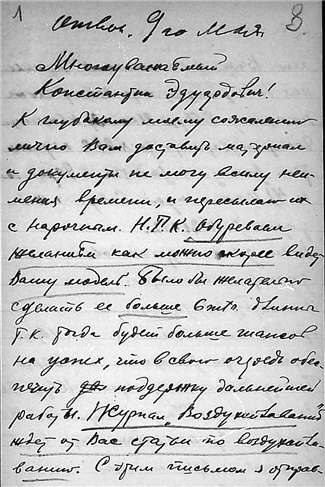 1 отвѣч. 9го мая 3.
Многоуважаемый
Константин Эдуардович!
К глубокому моему сожалению
лично Вам доставить материал
и документы не могу ввиду неи-
мения времени, и пересылаю их
с нарочным. Н.П.К. обуреваем
желанием как можно скорее видеть
Вашу модель. Было бы желательно
сделать ее больше 6 mtr. длины
т.к. тогда будет больше шансов
на успех, что в свою очередь обес-
печить поддержку дальнейшей
работы. Журнал „Воздухоплавание"
ждет от Вас статьи по воздухопла-
ванию. С этим письмом я отправ-